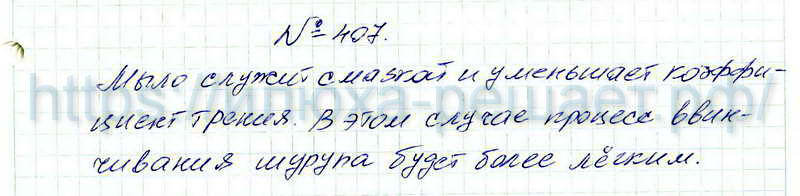 № 407.
Мыло служит смазкой и уменьшает коэффи-
циент трения. В этом случае процесс ввин-
чивания шурупа будет более лёгким.
https://илюха-решает.рф/